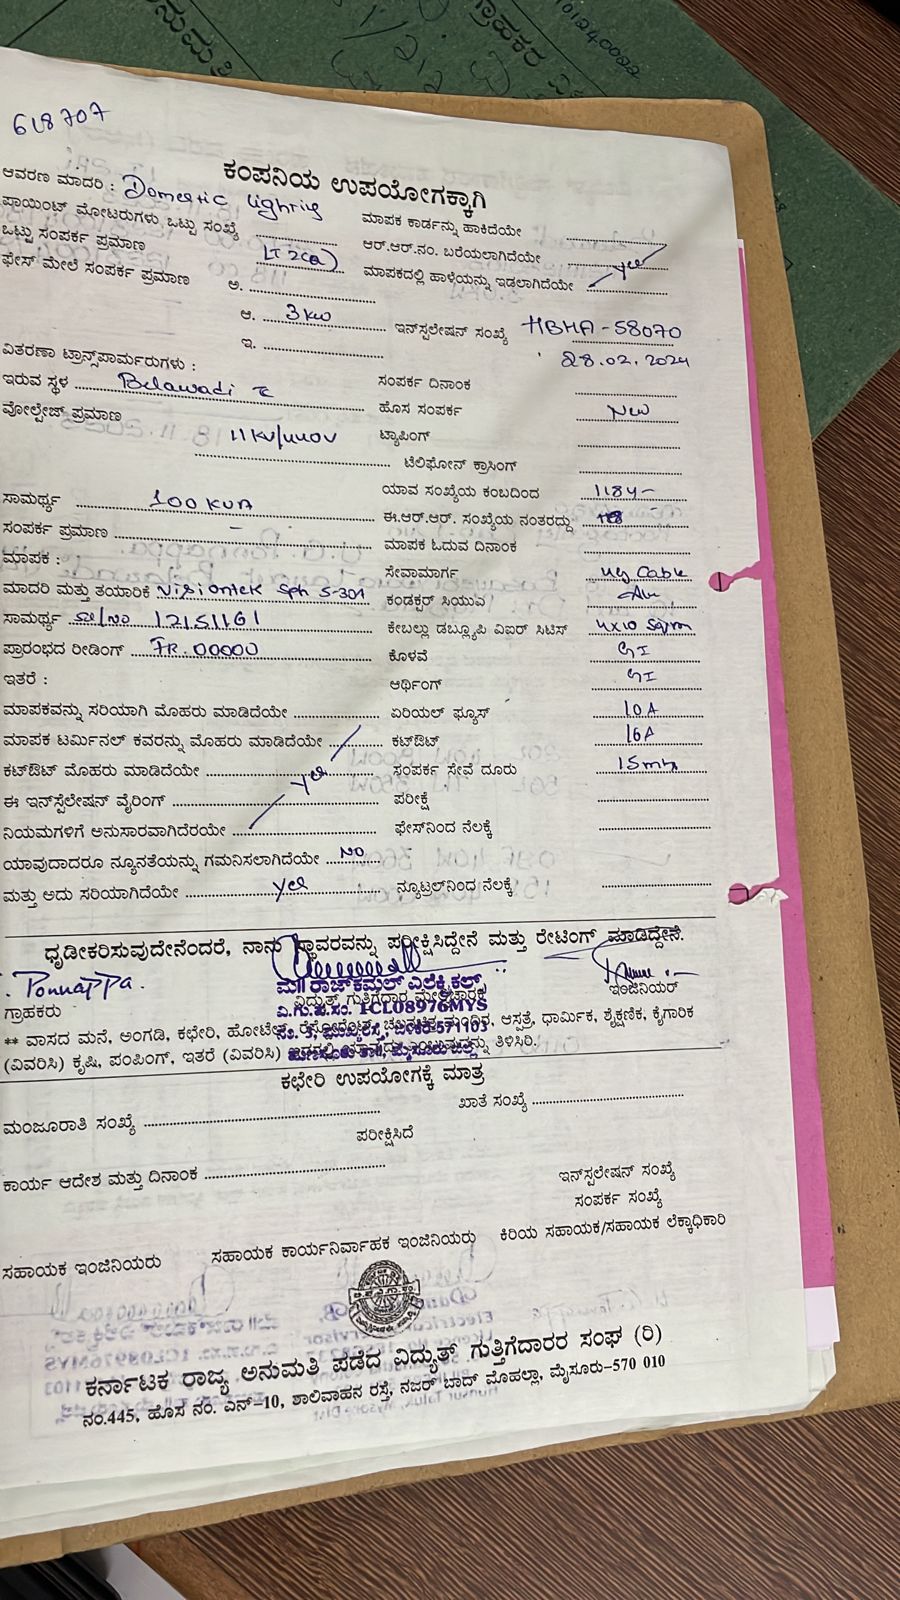 618707
ಕಂಪನಿಯ ಉಪಯೋಗಕ್ಕಾಗಿ
ಆವರಣ ಮಾದರಿ : Domestic lighting
ಮಾಪಕ ಕಾರ್ಡನ್ನು ಹಾಕಿದೆಯೇ
ಪಾಯಿಂಟ್ ಮೋಟರುಗಳು ಒಟ್ಟು ಸಂಖ್ಯೆ
ಆರ್.ಆರ್.ನಂ. ಬರೆಯಲಾಗಿದೆಯೇ
ಒಟ್ಟು ಸಂಪರ್ಕ ಪ್ರಮಾಣ LT 2(a)
ಮಾಪಕದಲ್ಲಿ ಹಾಳೆಯನ್ನು ಇಡಲಾಗಿದೆಯೇ yes
ಫೇಸ್ ಮೇಲೆ ಸಂಪರ್ಕ ಪ್ರಮಾಣ ಅ.
ಆ. 3 kw
ಇನ್‌ಸ್ಪಲೇಷನ್ ಸಂಖ್ಯೆ HBHA-58070
ಇ.
28.02.2024
ವಿತರಣಾ ಟ್ರಾನ್ಸ್‌ಪಾರ್ಮರುಗಳು :
ಸಂಪರ್ಕ ದಿನಾಂಕ
ಇರುವ ಸ್ಥಳ Belawadi TC
ಹೊಸ ಸಂಪರ್ಕ New
ವೋಲ್ಟೇಜ್ ಪ್ರಮಾಣ 11KV/440V
ಟ್ಯಾಪಿಂಗ್
ಟೆಲಿಫೋನ್ ಕ್ರಾಸಿಂಗ್
ಯಾವ ಸಂಖ್ಯೆಯ ಕಂಬದಿಂದ 1184-
ಸಾಮರ್ಥ್ಯ 100 KVA
ಈ.ಆರ್.ಆರ್. ಸಂಖ್ಯೆಯ ನಂತರದ್ದು
ಸಂಪರ್ಕ ಪ್ರಮಾಣ -
ಮಾಪಕ ಓದುವ ದಿನಾಂಕ
ಮಾಪಕ :
ಸೇವಾಮಾರ್ಗ UG Cable
ಮಾದರಿ ಮತ್ತು ತಯಾರಿಕೆ Visiontek Sph S-301
ಕಂಡಕ್ಟರ್ ಸಿಯುವ Alu
ಸಾಮರ್ಥ್ಯ Sl/No 12151161
ಕೇಬಲ್ಲು ಡಬ್ಲ್ಯೂಪಿ ವಿಐರ್ ಸಿಟಿಸ್ 4x10 Sqmm
ಪ್ರಾರಂಭದ ರೀಡಿಂಗ್ IR. 00000
ಕೊಳವೆ GI
ಇತರೆ :
ಆರ್ಥಿಂಗ್ GI
ಮಾಪಕವನ್ನು ಸರಿಯಾಗಿ ಮೊಹರು ಮಾಡಿದೆಯೇ
ಏರಿಯಲ್ ಫ್ಯೂಸ್ 10 A
ಮಾಪಕ ಟರ್ಮಿನಲ್ ಕವರನ್ನು ಮೊಹರು ಮಾಡಿದೆಯೇ
ಕಟ್‌ಔಟ್ 16A
ಕಟ್‌ಔಟ್ ಮೊಹರು ಮಾಡಿದೆಯೇ yes
ಸಂಪರ್ಕ ಸೇವೆ ದೂರು 15mtr
ಈ ಇನ್‌ಸ್ಪೆಲೇಷನ್ ವೈರಿಂಗ್
ಪರೀಕ್ಷೆ
ನಿಯಮಗಳಿಗೆ ಅನುಸಾರವಾಗಿದೆರಯೇ
ಫೇಸ್‌ನಿಂದ ನೆಲಕ್ಕೆ
ಯಾವುದಾದರೂ ನ್ಯೂನತೆಯನ್ನು ಗಮನಿಸಲಾಗಿದೆಯೇ No
ಮತ್ತು ಅದು ಸರಿಯಾಗಿದೆಯೇ yes
ನ್ಯೂಟ್ರಲ್‌ನಿಂದ ನೆಲಕ್ಕೆ
ಧೃಡೀಕರಿಸುವುದೇನೆಂದರೆ, ನಾನು ಸ್ಥಾವರವನ್ನು ಪರೀಕ್ಷಿಸಿದ್ದೇನೆ ಮತ್ತು ರೇಟಿಂಗ್ ಮಾಡಿದ್ದೇನೆ.
Ponnappa.
ಮ॥ ರಾಜ್‌ಕಮಲ್ ಎಲೆಕ್ಟ್ರಿಕಲ್ಸ್
ಇಂಜಿನಿಯರ್
ಗ್ರಾಹಕರು
ವಿದ್ಯುತ್ ಗುತ್ತಿಗೆದಾರ ಮೇಲ್ವಿಚಾರಕ
ವಿ.ಗು.ಪ.ಸಂ. 1CL08976MYS
** ವಾಸದ ಮನೆ, ಅಂಗಡಿ, ಕಛೇರಿ, ಹೋಟೆಲ್, ಆಸ್ಪತ್ರೆ, ಧಾರ್ಮಿಕ, ಶೈಕ್ಷಣಿಕ, ಕೈಗಾರಿಕ
(ವಿವರಿಸಿ) ಕೃಷಿ, ಪಂಪಿಂಗ್, ಇತರೆ (ವಿವರಿಸಿ) ತಿಳಿಸಿರಿ.
ಕಛೇರಿ ಉಪಯೋಗಕ್ಕೆ ಮಾತ್ರ
ಮಂಜೂರಾತಿ ಸಂಖ್ಯೆ
ಖಾತೆ ಸಂಖ್ಯೆ
ಪರೀಕ್ಷಿಸಿದೆ
ಕಾರ್ಯ ಆದೇಶ ಮತ್ತು ದಿನಾಂಕ
ಇನ್‌ಸ್ಪಲೇಷನ್ ಸಂಖ್ಯೆ
ಸಂಪರ್ಕ ಸಂಖ್ಯೆ
ಸಹಾಯಕ ಇಂಜಿನಿಯರು
ಸಹಾಯಕ ಕಾರ್ಯನಿರ್ವಾಹಕ ಇಂಜಿನಿಯರು
ಕಿರಿಯ ಸಹಾಯಕ/ಸಹಾಯಕ ಲೆಕ್ಕಾಧಿಕಾರಿ
ಕರ್ನಾಟಕ ರಾಜ್ಯ ಅನುಮತಿ ಪಡೆದ ವಿದ್ಯುತ್ ಗುತ್ತಿಗೆದಾರರ ಸಂಘ (ರಿ)
ನಂ.445, ಹೊಸ ನಂ. ಎನ್-10, ಶಾಲಿವಾಹನ ರಸ್ತೆ, ನಜರ್ ಬಾದ್ ಮೊಹಲ್ಲಾ, ಮೈಸೂರು-570 010